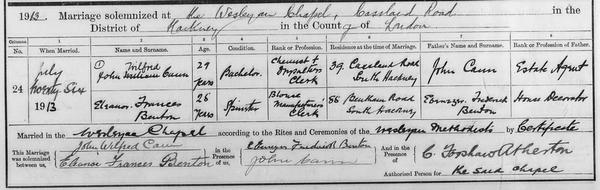 1913. Marriage solemnized at the Wesleyan Chapel, Cassland Road in the
District of Hackney in the County of London
Columns 1 2 3 4 5 6 7 8
No. When Married. Name and Surname. Age. Condition. Rank or Profession. Residence at the time of Marriage. Father's Name and Surname. Rank or Profession of Father.
24 July Twenty Six 1913
Wilfred John William Cann 29 Years Bachelor. Chemist & Clerk 39. Cassland Road South Hackney John Cann Estate Agent
Eleanor Frances Benton 26 Years Spinster Blouse Manufacturers Clerk 88 Bentham Road South Hackney Ebenezer Frederick Benton House Decorator
Married in the Wesleyan Chapel according to the Rites and Ceremonies of the Wesleyan Methodists by Certificate
This Marriage was solemnized between us, John Wilfred Cann Eleanor Frances Benton
in the Presence of us, Ebenezer Frederick Benton John Cann
And in the Presence of C. Foshaw Atherton
Authorised Person for the said Chapel